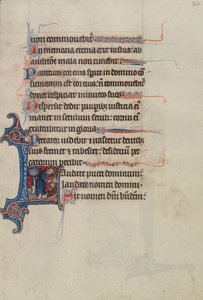 non commovebitur
In memoria eterna erit iustus: ab
auditione mala non timebit
Paratum cor eius sperare in domino con
firmatum est cor eius: non commovebitur
donec despiciat inimicos suos
Dispersit dedit pauperibus iusticia eius
manet in seculum seculi: cornu eius
exaltabitur in gloria
Peccator videbit et irascetur dentibus
suis fremet et tabescet: desiderium pec
catorum peribit
Laudate pueri dominum:
laudate nomen domini
Sit nomen domini